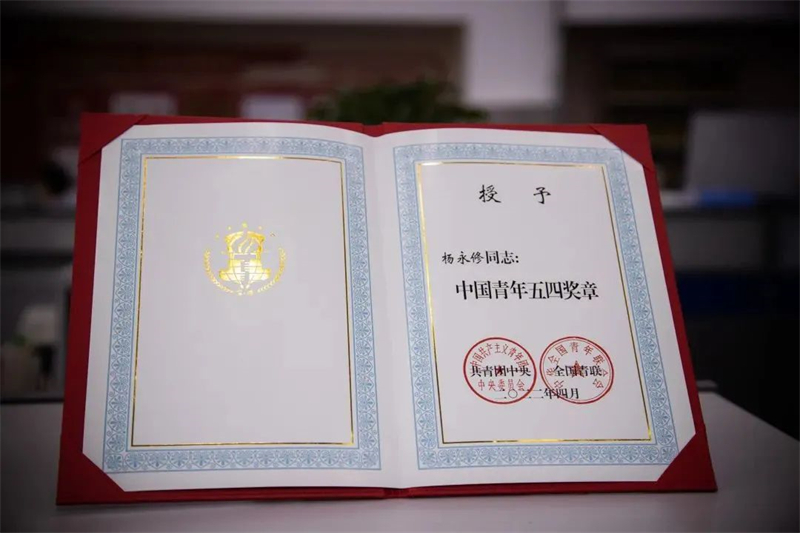 授予
杨永修同志:
中国青年五四奖章
中国共产主义青年团
中央委员会
中华全国青年联合会
共青团中央 全国青联
二〇二二年四月